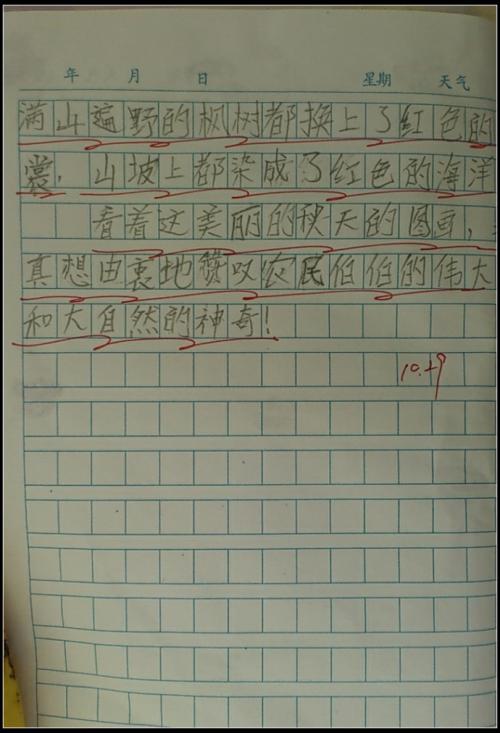 年 月 日 星期 天气
满山遍野的枫树都换上了红色的
裳,山坡上都染成了红色的海洋
看着这美丽的秋天的图画,
真想由衷地赞叹农民伯伯的伟大
和大自然的神奇!
10.29